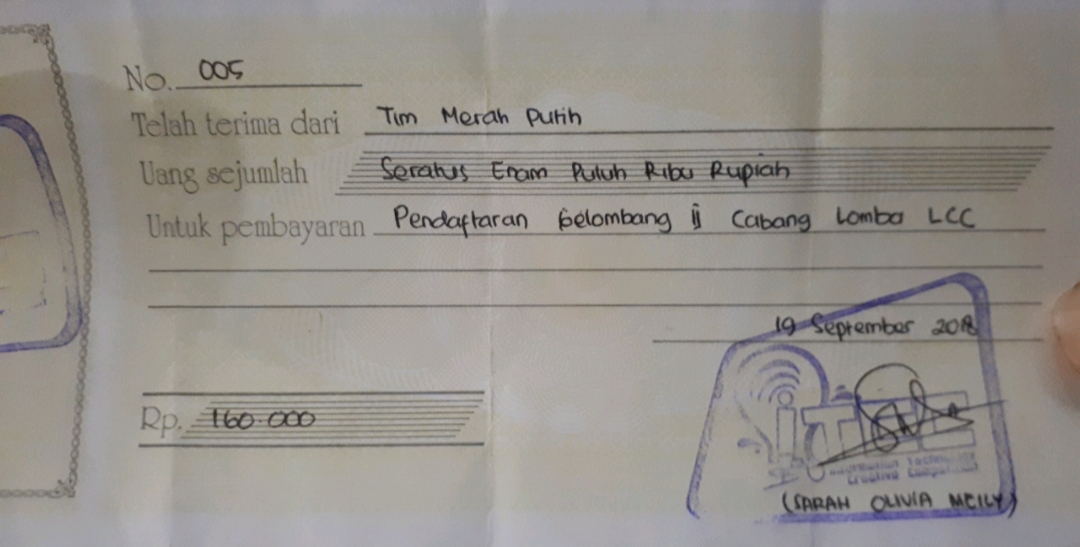 No. 005
Telah terima dari Tim Merah Putih
Uang sejumlah Seratus Enam Puluh Ribu Rupiah
Untuk pembayaran Pendaftaran Gelombang ij Cabang Lomba LCC
19 September 2018
Rp. 160.000
Information Technology
Creative Competition
(SARAH OLIVIA MEILY)